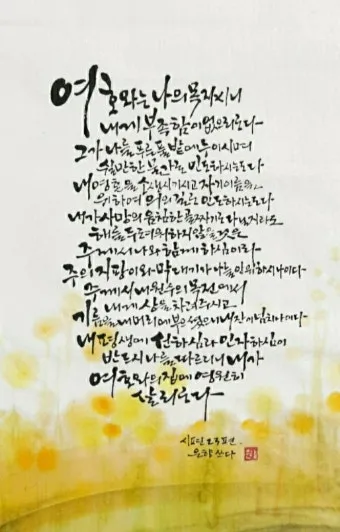 여호와는 나의 목자시니
내게 부족함이 없으리로다
그가 나를 푸른 풀밭에 누이시며
쉴만한 물가로 인도하시는도다
내 영혼을 소생시키시고 자기 이름을
위하여 의의 길로 인도하시는도다
내가 사망의 음침한 골짜기로 다닐지라도
해를 두려워하지 않을 것은
주께서 나와 함께 하심이라
주의 지팡이와 막대기가 나를 안위하시나이다
주께서 내 원수의 목전에서
내게 상을 차려주시고
기름을 내 머리에 부으셨으니 내 잔이 넘치나이다
내 평생에 선하심과 인자하심이
반드시 나를 따르리니 내가
여호와의 집에 영원히
살리로다
시편 23편
쓰다